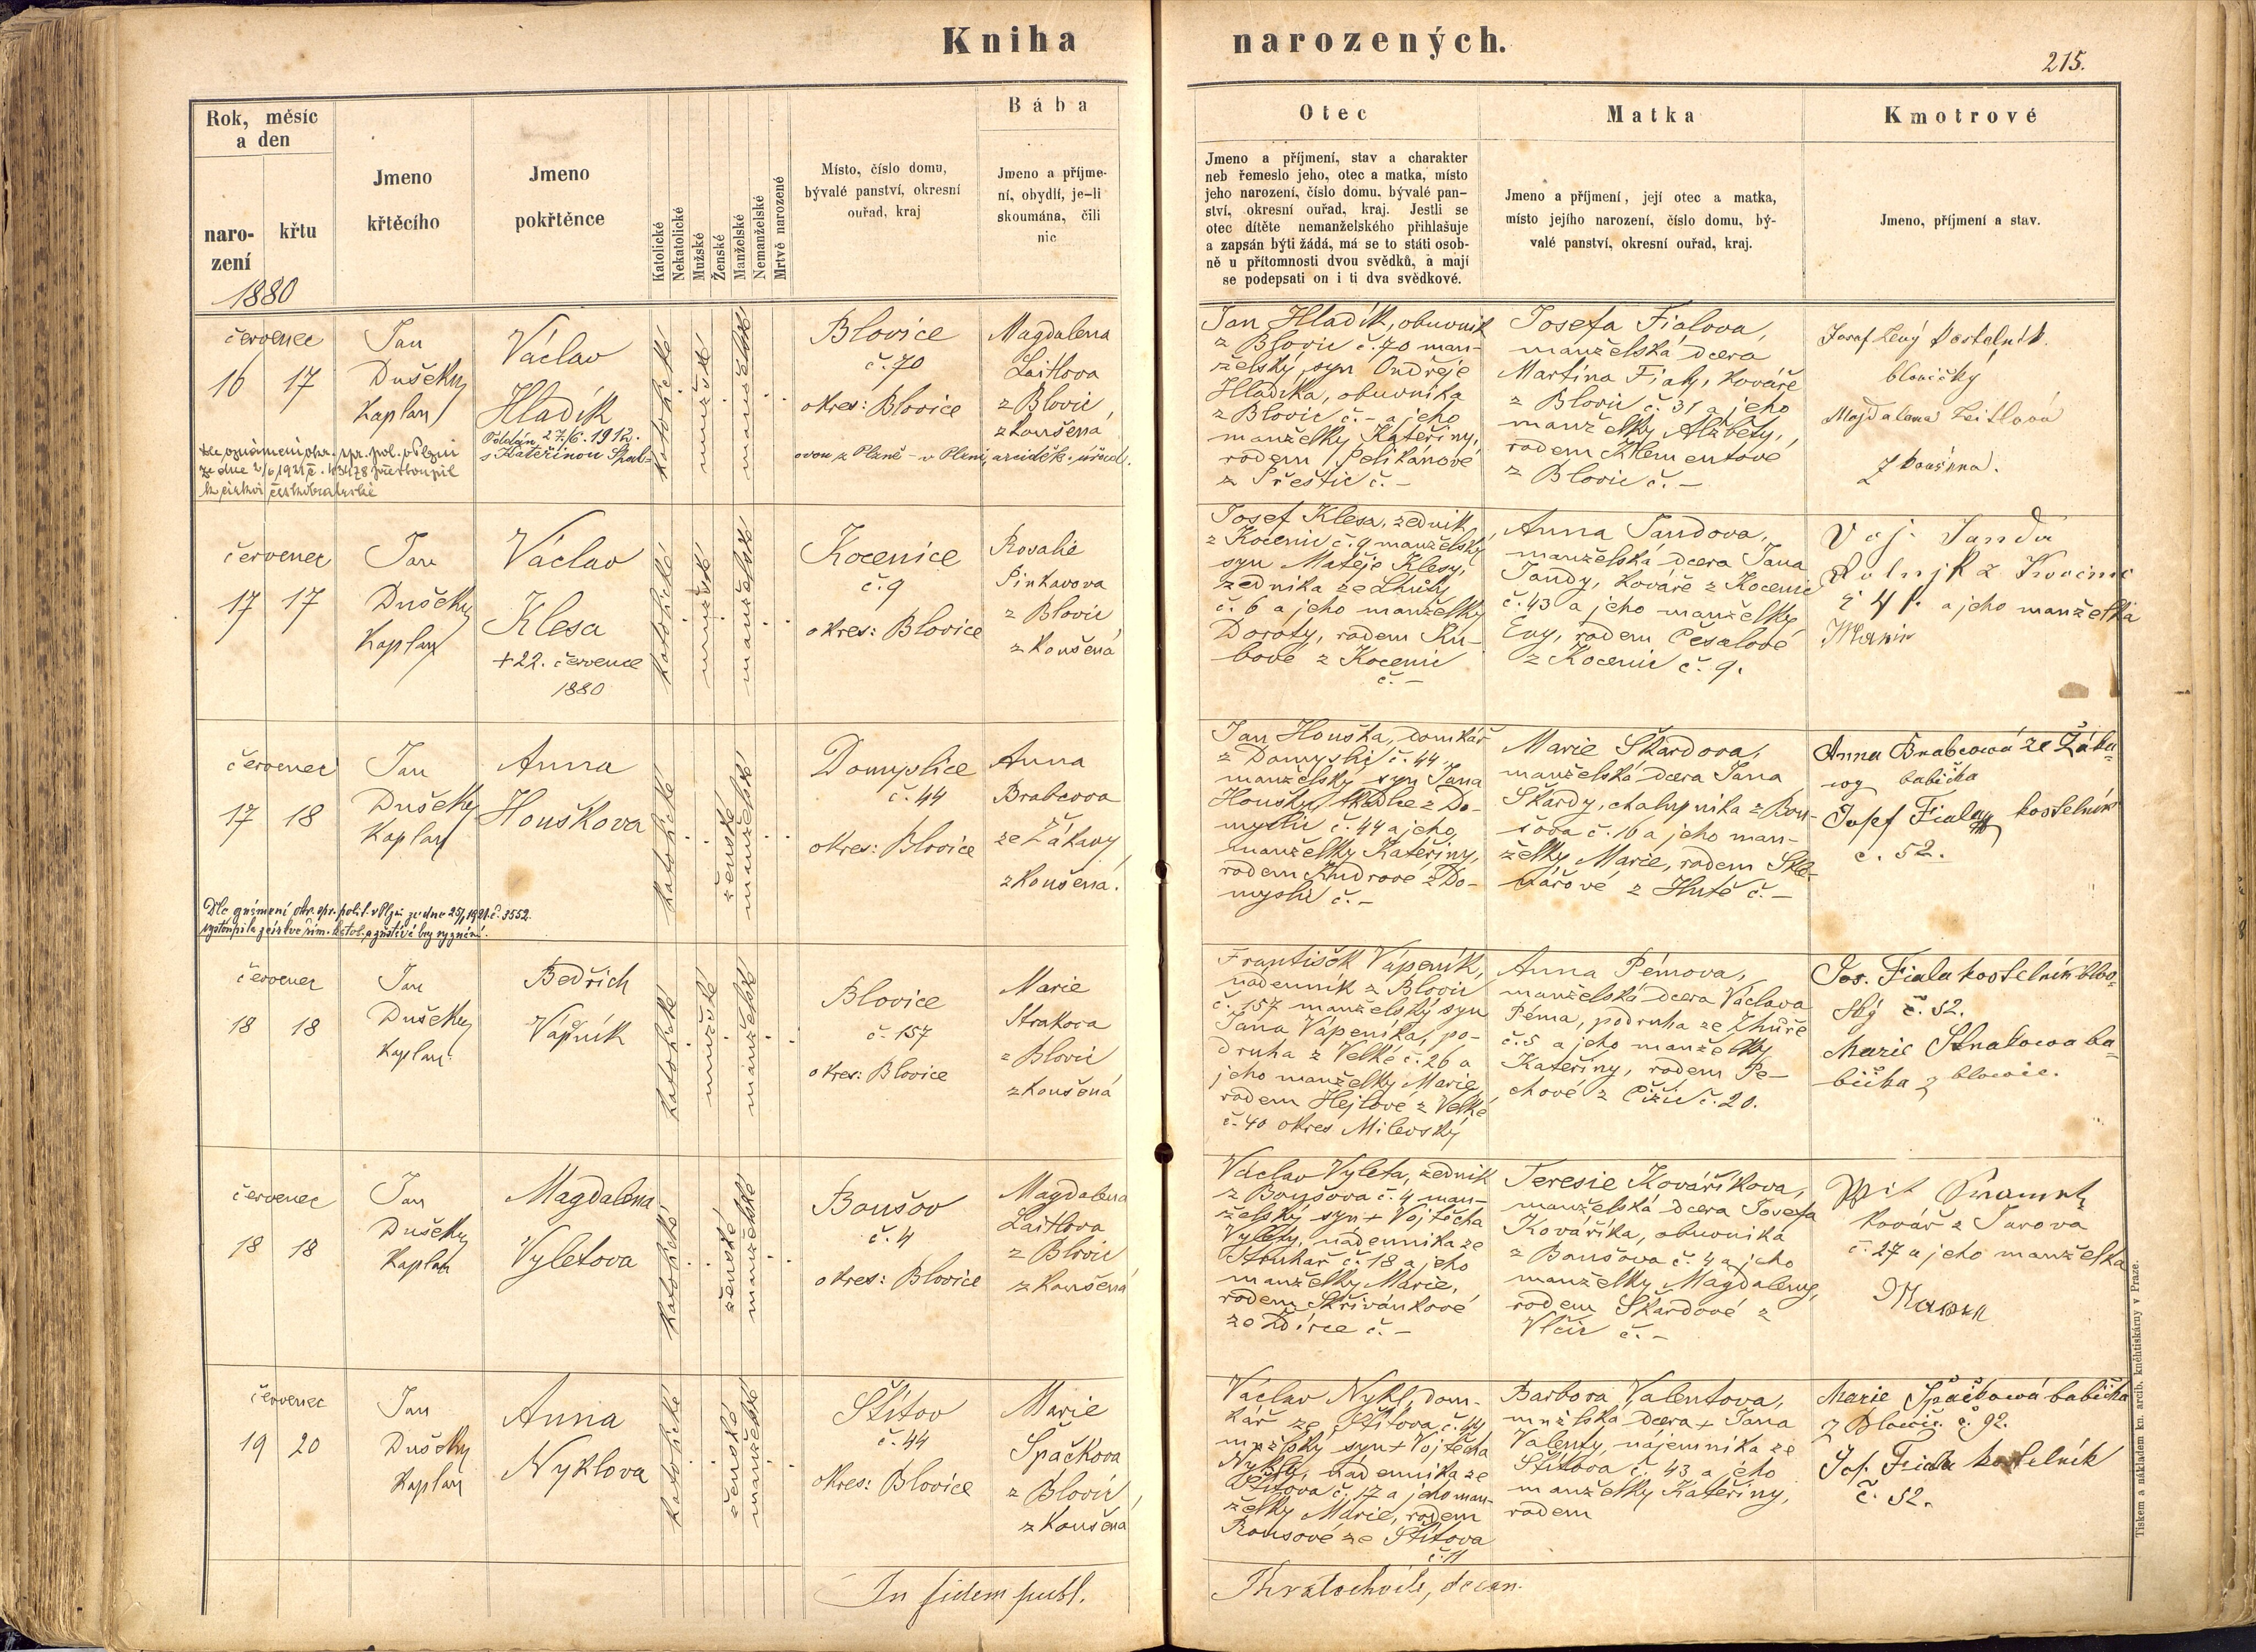 Kniha narozených.
215.
Rok, měsíc
a den
naro-
zení
křtu
1880
Jmeno
křtěcího
Jmeno
pokřtěnce
Katolické
Nekatolické
Mužské
Ženské
Manželské
Nemanželské
Mrtvě narozené
Místo, číslo domu,
bývalé panství, okresní
ouřad, kraj
Bába
Jmeno a příjme-
ní, obydlí, je-li
skoumána, čili
nic
Otec
Jmeno a příjmení, stav a charakter
neb řemeslo jeho, otec a matka, místo
jeho narození, číslo domu, bývalé pan-
ství, okresní ouřad, kraj. Jestli se
otec dítěte nemanželského přihlašuje
a zapsán býti žádá, má se to státi osob-
ně u přítomnosti dvou svědků, a mají
se podepsati on i ti dva svědkové.
Matka
Jmeno a příjmení, její otec a matka,
místo jejího narození, číslo domu, bý-
valé panství, okresní ouřad, kraj.
Kmotrové
Jmeno, příjmení a stav.
červenec
16 17
Jan
Dušek
Kaplan
Václav
Hladík
Oddán 27./6. 1912.
s Kateřinou
katolické
mužské
manželské
Blovice
č. 70
okres: Blovice
Magdalena
Laitlova
z Blovic
zkoušená
Jan Hladík, obuvník
z Blovic č. 70 man-
želský syn Ondřeje
Hladíka, obuvníka
z Blovic č. - a jeho
manželky Kateřiny,
rodem Pelikánové
z Přeštic č. -
Josefa Fialova,
manželská dcera
Martina Fialy, kováře
z Blovic č. 31 a jeho
manželky Alžběty,
rodem Klementové
z Blovic č. -
kostelník
blovičky
Majdalena Leitlová
zkoušená.
červenec
17 17
Jan
Dušek
Kaplan
Václav
Klesa
+ 22. července
1880
katolické
mužské
manželské
Kocenice
č. 9
okres: Blovice
Rosalie
Pinkavova
z Blovic
zkoušená
Josef Klesa, zedník
z Kocenic č. 9 manželský
syn Matěje Klesy,
zedníka ze Lhůty
č. 6 a jeho manželky
Doroty, rodem Ku-
bové z Kocenic
č. -
Anna Jandova,
manželská dcera Jana
Jandy, kováře z Kocenic
č. 43 a jeho manželky
Evy, rodem Česalové
z Kocenic č. 9.
Janda
a jeho manželka
červenec
17 18
Jan
Dušek
Kaplan
Anna
Houškova
katolické
ženské
manželské
Domyslice
č. 44
okres: Blovice
Anna
Brabcova
ze Žákavy
zkoušená.
Dle oznámení okr. spr. polit. v Plzni ze dne 25/1 1921 č. 3552.
vystoupila z církve řím. katol. a zůstává bez vyznání.
Jan Houška, domkář
z Domyslic č. 44
manželský syn Jana
Houšky, tkadlce z Do-
myslic č. 44 a jeho
manželky Kateřiny,
rodem Kudrové z Do-
myslic č. -
Marie Škardova,
manželská dcera Jana
Škardy, chalupníka z Bou-
šova č. 16 a jeho man-
želky Marie, rodem Skle-
nářové z Hutě č. -
Anna Brabcowá ze Žáka-
wy babička
Josef Fiala kostelník
č. 52.
červenec
18 18
Jan
Dušek
Kaplan
Bedřich
Vápeník
katolické
mužské
manželské
Blovice
č. 157
okres: Blovice
Marie
Strakova
z Blovic
zkoušená
František Vápeník,
nádenník z Blovic
č. 157 manželský syn
Jana Vápeníka, po-
druha z Velké č. 26 a
jeho manželky Marie,
rodem Hejlové z Velké
č. 40 okres Milevský
Anna Pémova,
manželská dcera Václava
Péma, podruha ze Zhůře
č. 5 a jeho manželky
Kateřiny, rodem Pe-
chové z Čižic č. 20.
Jos. Fiala kostelník
č. 52.
Marie Strakowa ba-
bička z blowic.
červenec
18 18
Jan
Dušek
Kaplan
Magdalena
Vyletova
katolické
ženské
manželské
Boušov
č. 4
okres: Blovice
Magdalena
Laitlova
z Blovic
zkoušená
Václav Vyleta, zedník
z Boušova č. 4 man-
želský syn + Vojtěcha
Vylety, nádenníka ze
Struhař č. 18 a jeho
manželky Marie,
rodem Skřivánkové
ze Ždírce č. -
Teresie Kováříkova,
manželská dcera Josefa
Kováříka, obuvníka
z Boušova č. 4 a jeho
manželky Magdaleny,
rodem Škardové z
Vlčic č. -
kovář z Jarova
č. 27 a jeho manželka
červenec
19 20
Jan
Dušek
Kaplan
Anna
Nyklova
katolické
ženské
manželské
Štítov
č. 44
okres: Blovice
Marie
Špačkova
z Blovic
zkoušená
Václav Nykl, dom-
kář ze Štítova č. 44
mnželský syn + Vojtěcha
Nykla, nádenníka ze
Štítova č. 17 a jeho man-
želky Marie, rodem
Rousové ze Štítova
č. 11
Barbora Valentova,
mnželská dcera + Jana
Valenty, nájemníka ze
Štítova č. 43 a jeho
manželky Kateřiny,
rodem
Marie Špačkowá babička
z Blowic č. 92.
Jos. Fiala kostelník
č. 52.
In fidem publ.
decan.
Tiskem a nákladem kn. arcib. kněhtiskárny v Praze.